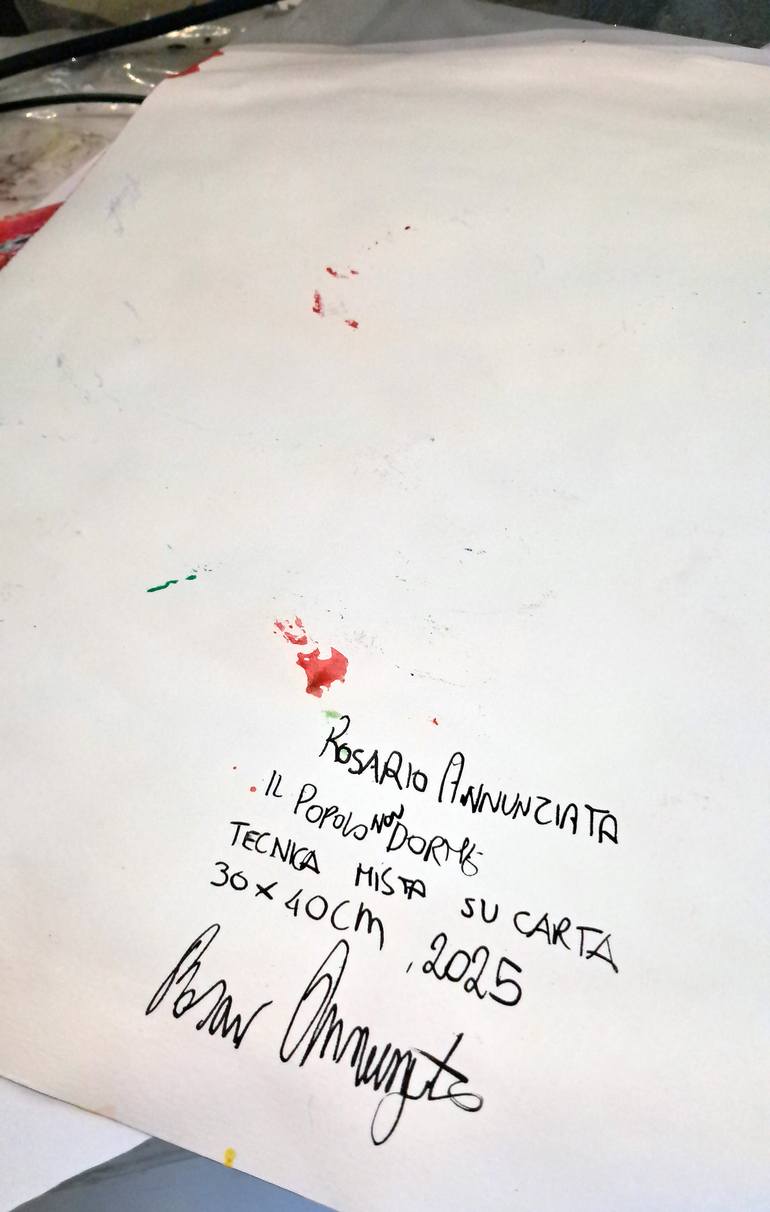 ROSARIO ANNUNZIATA
IL POPOLO NON DORME
TECNICA MISTA SU CARTA
30 x 40 cm, 2025
Rosar Annunziata